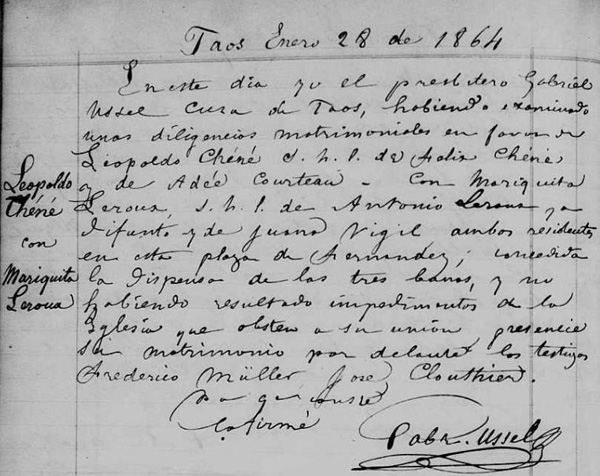 Taos Enero 28 de 1864
En este dia yo el presbitero Gabriel
Ussel Cura de Taos, habiendo examinado
unas diligencias matrimoniales en favor de
Leopoldo Chéné S. h. l. de Felix Chéné
y de Adée Courteau - Con Mariquita
Leroux, S. h. l. de Antonio Leroux ya
difunto y de Juana Vigil ambos residentes
en esta plaza de Fernandez; concedida
la dispensa de las tres banas, y no
habiendo resultado impedimentos de la
Yglesia que obsten a su unión presencie
su matrimonio por delante los testigos
Frederico Müller José Clouthier.
Leopoldo
Chéné
con
Mariquita
Leroux
la firmé
Gabr. Ussel